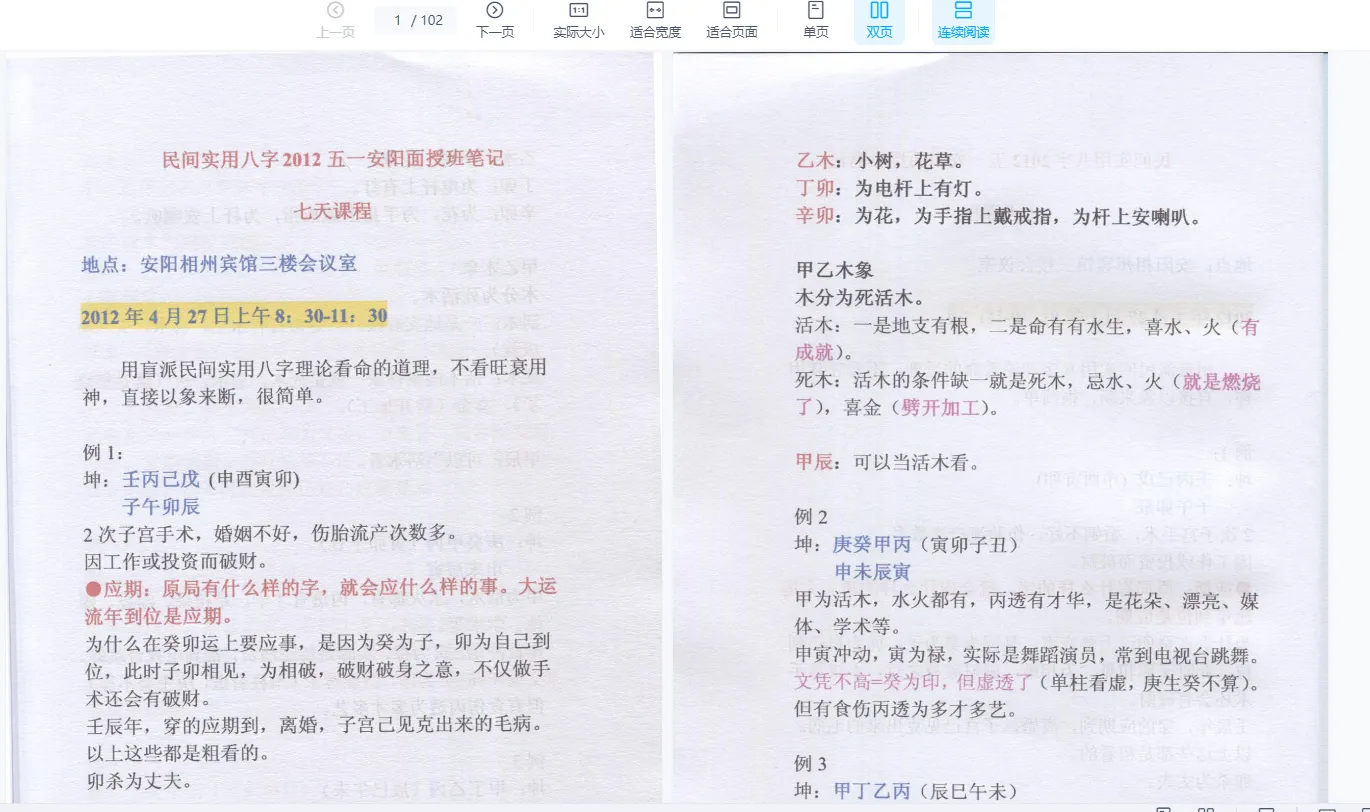 上一页
1 / 102
下一页
1:1
实际大小
适合宽度
适合页面
单页
双页
连续阅读
民间实用八字2012 五一安阳面授班笔记
七天课程
地点：安阳相州宾馆三楼会议室
2012 年 4 月 27 日上午 8：30-11：30
用盲派民间实用八字理论看命的道理，不看旺衰用
神，直接以象来断，很简单。
例 1：
坤：壬丙己戊（申酉寅卯）
子午卯辰
2 次子宫手术，婚姻不好，伤胎流产次数多。
因工作或投资而破财。
●应期：原局有什么样的字，就会应什么样的事。大运
流年到位是应期。
为什么在癸卯运上要应事，是因为癸为子，卯为自己到
位，此时子卯相见，为相破，破财破身之意，不仅做手
术还会有破财。
壬辰年，穿的应期到，离婚，子宫己见克出来的毛病。
以上这些都是粗看的。
卯杀为丈夫。
乙木：小树，花草。
丁卯：为电杆上有灯。
辛卯：为花，为手指上戴戒指，为杆上安喇叭。
甲乙木象
木分为死活木。
活木：一是地支有根，二是命有有水生，喜水、火（有
成就）。
死木：活木的条件缺一就是死木，忌水、火（就是燃烧
了），喜金（劈开加工）。
甲辰：可以当活木看。
例 2
坤：庚癸甲丙（寅卯子丑）
申未辰寅
甲为活木，水火都有，丙透有才华，是花朵、漂亮、媒
体、学术等。
申寅冲动，寅为禄，实际是舞蹈演员，常到电视台跳舞。
文凭不高=癸为印，但虚透了（单柱看虚，庚生癸不算）。
但有食伤丙透为多才多艺。
例 3
坤：甲丁乙丙（辰巳午未）